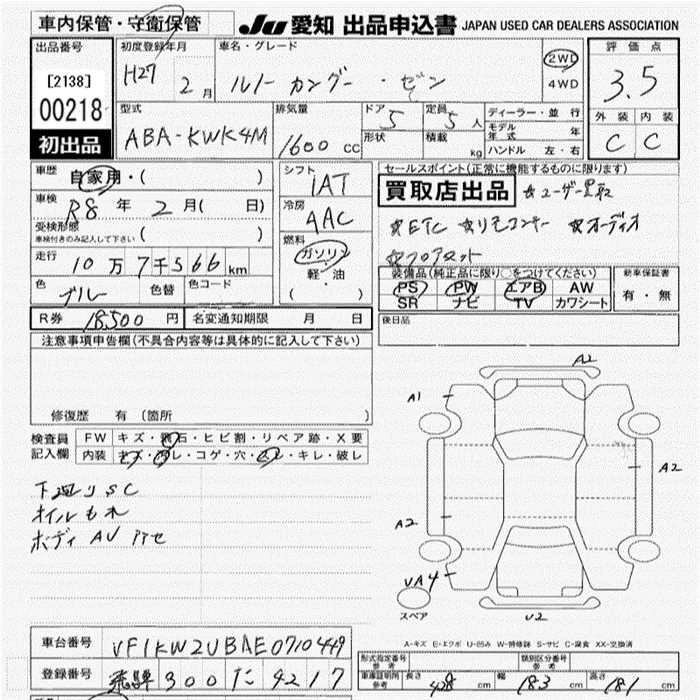 車内保管・守衛保管 JU 愛知 出品申込書 JAPAN USED CAR DEALERS ASSOCIATION
出品番号 初度登録年月 車名・グレード 評価点
[2138] H27 2月 ルノー カングー・ゼン 2WD 4WD 3.5
00218 型式 排気量 ドア 定員 ディーラー・並行 外装 内装
初出品 ABA-KWK4M 1600 CC 5 5人 モデル年式 年 C C
形状 積載 kg ハンドル 左・右
車歴 自家用・( ) シフト セールスポイント(正常に機能するものに限ります)
1AT 買取店出品 ☆ユーザー買取
車検 R8年 2月( 日) 冷房
受検形態 車検付きのみ記入して下さい ( ) AAC ☆ETC ☆リモコンキー ☆オーディオ
燃料 ☆フロアマット
走行 10万7千566km ガソリン 装備品(純正品に限り○をつけてください) 新車保証書
軽・油 PS PW エアB AW 有・無
色 ブルー 色替 色コード ( ) SR ナビ TV カワシート
R券 18,500円 名変通知期限 月 日 後日品
注意事項申告欄(不具合内容等は具体的に記入して下さい)
修復歴 有 (箇所 )
検査員記入欄 FW キズ・飛石・ヒビ割・リペア跡・X要
内装 キズ・コゲ・穴・キレ・破レ
下廻りSC
オイルもれ
ボディ AU
A2
A1
A2
A2
UA4
スペア
U2
A-キズ E-エクボ U-凹み W-補修跡 S-サビ C-腐食 XX-交換済
車台番号 VF1KW2UBAE0710449
形式指定番号 参考 類別区分番号 参考
登録番号 飛騨 300 た 4217 車庫証明用 参考 長さ 428 cm 幅 183 cm 高さ 181 cm